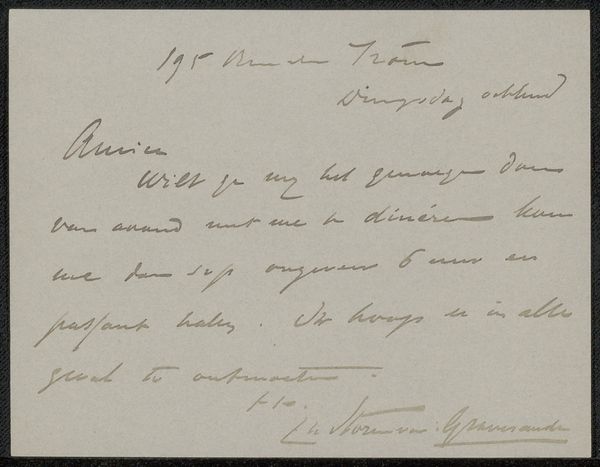 195 Rue du Trône
Dingsdag ochtend
Amice
Wilt ge my het genoegen doen
van avond met me te dineren kom
me dan svp ongeveer 6 uur en
passant halen. Ik hoop u in alle
geval te ontmoeten.
t.t.
Storm van 's Gravesande